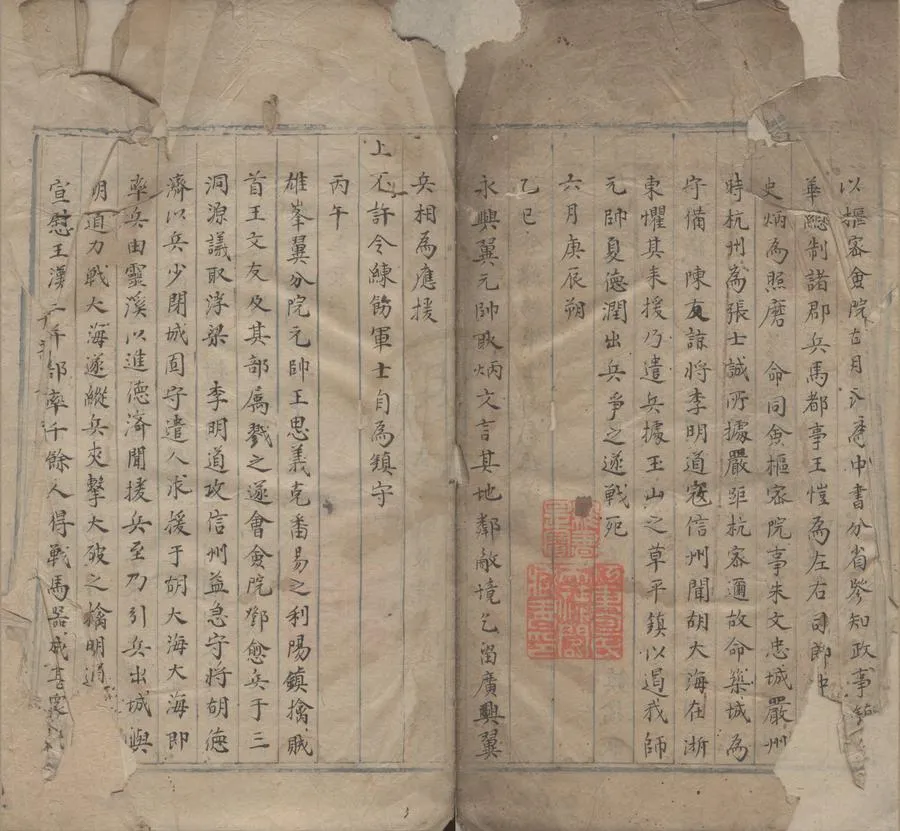 以樞密僉院胡大海為中書分省參知政事鎮金
華總制諸郡兵馬都事王愷為左右司郎中
史炳為照磨　命同僉樞密院事朱文忠城嚴州
時杭州為張士誠所據嚴距杭密邇故命築城為
守備　陳友諒將李明道寇信州聞胡大海在浙
東懼其来援乃遣兵據玉山之草平鎮以遏我師
元帥夏德潤出兵爭之遂戰死
六月庚辰朔
乙巳
永興翼元帥耿炳文言其地鄰敵境乞留廣興翼
兵相為應援
上不許令練飭軍士自為鎮守
丙午
雄峯翼分院元帥王思義克番昜之利陽鎮擒賊
首王文友及其部属戮之遂會僉院鄧愈兵于三
洞源議取浮梁　李明道攻信州益急守將胡德
濟以兵少閉城固守遣人求援于胡大海大海即
率兵由靈溪以進德濟聞援兵至乃引兵出城與
明道力戰大海遂縱兵夾擊大破之擒明道
宣慰王漢二并部率千餘人得戰馬器械甚衆